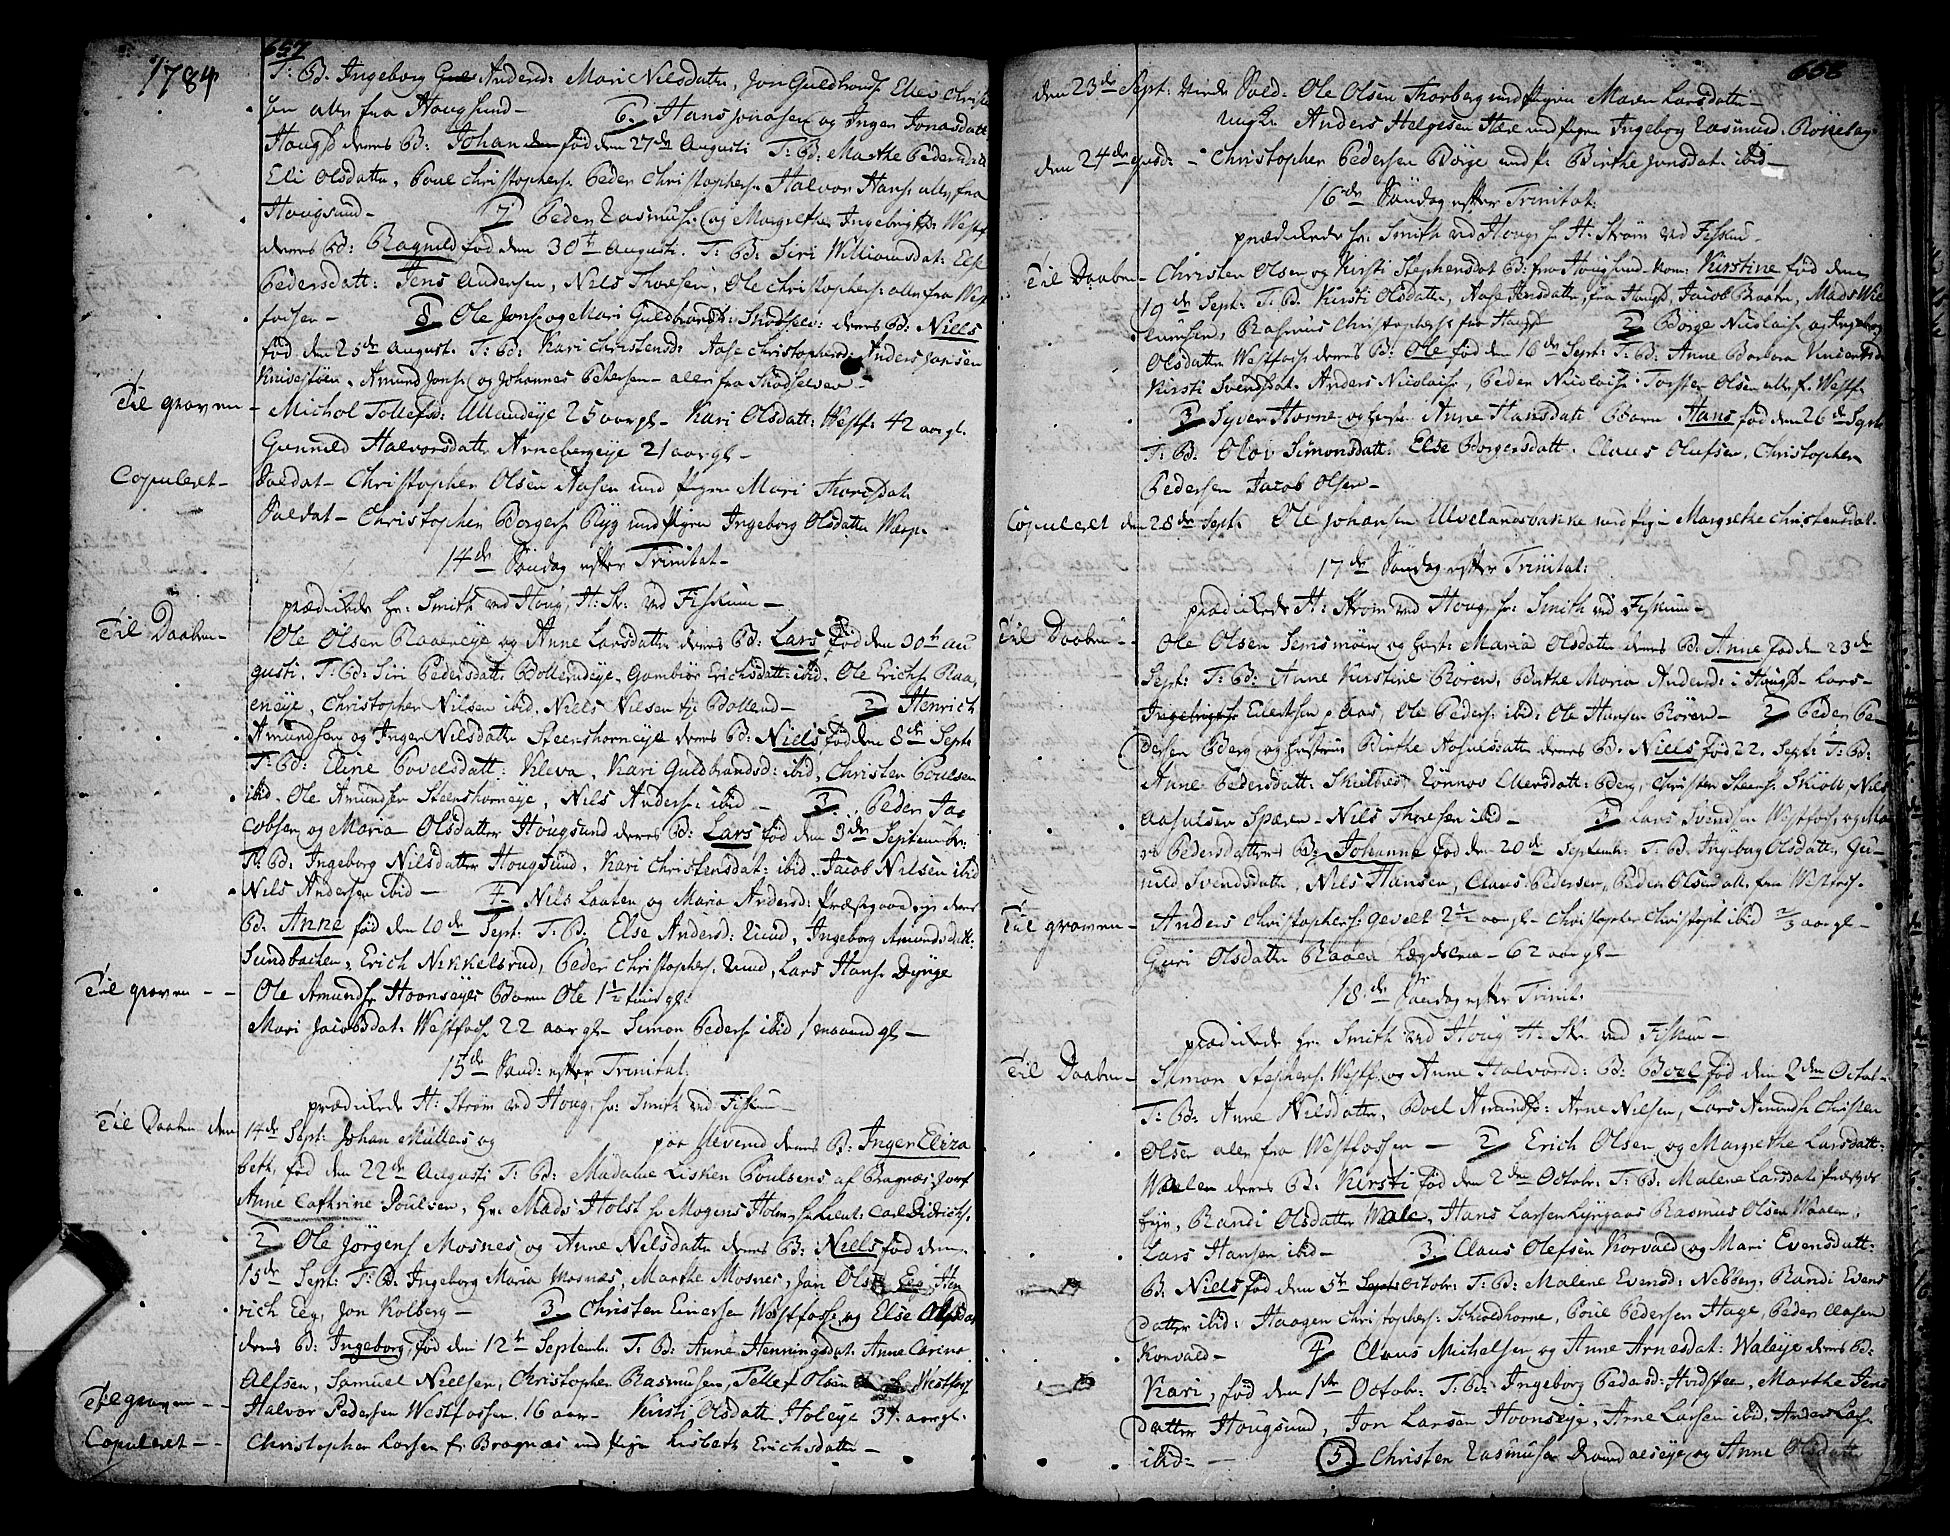 1784
657
T: B: Ingeborg Andersd: Mari Nilsdatter, Jon Guldbrands: Ellev Christe
sen alle fra Hougsund -
6, Hans Jonasen og Inger Jonasdatt
Hougs: deres B: Johan den fød den 27de Augusti T: B: Marthe Pedersdatt
Eli Olsdatter, Poul Christophers: Peder Christophers: Halvor Hans: alle fra
Hougsund -
7 Peder Rasmus: og Margrethe Ingebrigtsd: Westf:
deres B: Ragnild fød den 30te Augusti. T: B: Siri Williamsdat: Else
Pedersdatt: Jens Andersen, Niels Thoresen, Ole Christophers: alle fra West
fossen -
8 Ole Jons: og Mari Guldbrandsd: Skodselv: deres B: Niels
fød den 25de August. T: B: Kari Christensd: Aase Christophersd: Anders Jansen
Amund Jons: og Johannes Pettersen - alle fra Skodselven -
Til graven - Michel Tollefsd: Ullandeye 25 aar gl - Kari Olsdatt: Westf: 42 aar gl.
Gunnild Halvorsdatter Arnebergeye 21 aar gl -
Copuleret - Soldat - Christopher Olsen Aasen med pigen Mari Thoresdat:
Soldat - Christopher Borgers: Ryg med pigen Ingeborg Olsdatter Warp.
14de Søndag efter Trinitat -
prædikede Hr: Smith ved Houg, H: Str: ved Fiskum -
Til Daaben - Ole Olsen Raaeneye og Anne Larsdatter deres B: Lars fød den 30te Au
gusti. T: B: Siri Pedersdatter Bollerudeye, Gambiør Erichsdatt: ibid, Ole Erichs: Raa
eneye, Christopher Nilsen ibid, Niels Nilsen Bollerud -
2 Henrich
Amundsen og Inger Nilsdatter Steenshorneye deres B: Niels fød den 8de Sept:
T: B: Eline Povelsdatt: Kleva, Kari Guldbrandsd: ibid, Christen Poulsen
ibid, Ole Amunds: Steenshorneye, Nils Anders: ibid -
3. Peder Ja
cobsen og Maria Olsdatter Hougsund deres B: Lars fød den 3de Septembr:
T: B: Ingeborg Nilsdatter Hougsund, Kari Christensdat: ibid, Jacob Nilsen ibid
Nils Andersen ibid -
4. Nils Laaten og Maria Andersd: Præstegaardseye deres
B: Anne fød den 10de Sept: T: B: Else Andersd: Ruud, Ingeborg Amundsdatt:
Sundbachen, Erich Nikkelsrud, Peder Christophers: Ruud, Lars Hans: Dynge
Til graven - - Ole Amunds: Hoonseyes Barn Ole 1½ time gl:
Mari Jacobsdat: Westfoss: 22 aar gl - Simon Peders: ibid 1 maaned gl -
15de Sønd: efter Trinitat:
prædikede H: Strøm ved Houg, Hr: Smith ved Fiskum -
Til Daaben den 14de Sept: Johan Müllers og paa Ulverud deres B: Inger Eliza
beth, fød den 22de Augusti T: B: Madame Lisken Poulsens af Bragnæs, Jomf
Anne Cathrine Poulsen, Hr: Mads Holst Hr: Mogens Holm, Hr: Lieut: Carl Didrichs:
2 Ole Jørgens: Mosnes og Anne Nilsdatter deres B: Niels fød den
15de Sept: T: B: Ingeborg Maria Mosnæs, Marthe Mosnes, Jan Olsen Eeg, Hen
rich Eeg, Jon Kolberg -
3 Christen Einersen Westfoss: og Else Olsdat
deres B: Ingeborg fød den 12te Septemb: T: B: Anne Henningsdat: Anne Carine
Alfsen, Samuel Nielsen, Christopher Rasmussen, Tellef Olsen Westfoss
Til graven - - Halvor Pedersen Westfossen 16 aar - Kirsti Olsdatter Holeye 37 aar gl.
Copuleret - - Christopher Larsen f: Bragnæs med pige Lisbeth Erichsdatter -
658
den 23de Sept: viede Sold: Ole Olsen Thorberg med pigen Maren Larsdatter -
ungk: Anders Helgesen med pigen Ingeborg Rasmusd:
den 24de ejusd: - Christopher Pedersen Børge med p: Birthe Jonsdat: ibid -
16de Søndag efter Trinitat:
prædikede Hr: Smith ved Houg Hr: H: Strøm ved Fiskum -
Til Daaben - Christen Olsen og Kirsti Stephensdat B: fra Hougsund - Nom: Kirstine fød den
19de Sept: T: B: Kirsti Olsdatter, Aase Jensdatter, fra Hougs: Jacob Braaten, Mads Wil
lumsen, Rasmus Christophers: fra Hougs:
2 Børge Nicolais: og Ingeborg
Olsdatter Westfoss: deres B: Ole fød den 16de Sept: T: B: Anne Barbara Vincentsd:
Kirsti Svendsdat: Anders Nicolais:, Peder Nicolais: Torsten Olsen alle f: Westf:
3 Syver Horne og hustr: Anne Hansdatt: Barn Hans fød den 26de Septb
T: B: Olov Simonsdatt: Else Borgersdatt: Claus Olufsen, Christopher
Pedersen Jacob Olsen -
Copuleret den 28de Sept: Ole Johansen Ulvelandsvanke med pige Margrethe Christensdat:
17de Søndag efter Trinitat:
prædikede H: Strøm ved Houg, Hr: Smith ved Fiskum -
Til Daaben - Ole Olsen Semsmoen og hust: Maria Olsdatter deres B: Anne fød den 23de
Sept: T: B: Anne Kirstine Røren, Birthe Maria Andersd: i Hougs: Lars
Ingebrigtsen Eilertsen p Aas, Ole Peders: ibid: Ole Hansen Røren -
2 Peder Pe
dersen Berg og hustrue Birthe Aasulsdatter deres B: Niels fød 22. Sept: T: B:
Anne Pedersdatt: Skilbred, Rønnov Iversdatt: Berg, Christen Steens: Skiøll, Nils
Aasulsen Spæren - Nils Thoresen ibid -
3 Lars Svendsen Westfos: og Ma
ri Pedersdatter B: Johanne fød den 20de September T: B: Ingebor Olsdatter, Gu
nild Svendsdatter, Nils Hansen, Claus Pedersen, Peder Olsen all: fra Westfos:
Til graven - Anders Christophers: Gevelt 2½ aar gl - Christopher Christophs: ibid ⅔ aar gl -
Guri Olsdatter Raaen Lægdslem - 62 aar gl -
18de Søndag efter Trinit:
prædikede Hr: Smith ved Houg H: Str: ved Fiskum -
Til Daaben - Samon Stephens: Westf: og Anne Halvorsd: B: Boel fød den 2den Octob:
T: B: Anne Nilsdatter, Boel Amundsd: Arne Nilsen, Lars Amunds: Christen
Olsen alle fra Westfossen -
2 Erich Olsen og Margrethe Larsdatt:
Waalen deres B: Kirsti fød den 2den Octobr: T: B: Malene Larsdat:
Randi Olsdatter Wale, Hans Larsen Lyngaas Rasmus Olsen Waalen,
Lars Hansen ibid -
3 Claus Olefsen Korvald og Mari Evensdatt:
B: Niels fød den 5te Sept: Octobr: T: B: Malene Evensd: Nebberg, Randi Evens
datter ibid: Haagen Christophers: Schioldhorne, Poul Pedersen Hage, Peder Clasen
Korvald -
4 Claus Michelsen og Anne Arnesdat: Waleye deres B:
Kari, fød den 1de Octobr: T: B: Ingeborg Pedersd: Hvidsteen, Marthe Jens
datter Hougsund, Jon Larsen Hoonseye, Arne Larsen ibid, Anders Lars:
ibid: -
5. Christen Rasmusen og Anne Olsdatter